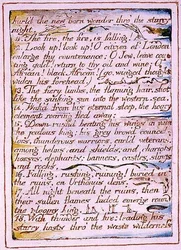 hurld the new born wonder thro the starry
night.
11. The fire, the fire, is falling!
12. Look up! look up! O citizen of London
enlarge thy countenance; O Jew, leave coun-
ting gold! return to thy oil and wine; O
African! black African! (go. winged thought
widen his forehead.)
13. The fiery limbs, the flaming hair, shot
like the sinking sun into the western sea.
14. Wak'd from his eternal sleep, the hoary
element roaring fled away:
15. Down rushd beating his wings in vain
the jealous king; his grey brow'd council-
lors, thunderous warriors, curl'd veterans,
among helms, and shields, and chariots
horses, elephants: banners, castles, slings
and rocks,
16. Falling, rushing, ruining! buried in
the ruins, on Urthona's dens.
17. All night beneath the ruins, then
their sullen flames faded emerge round
the gloomy king,
18. With thunder and fire: leading his
starry hosts thro' the waste wilderness